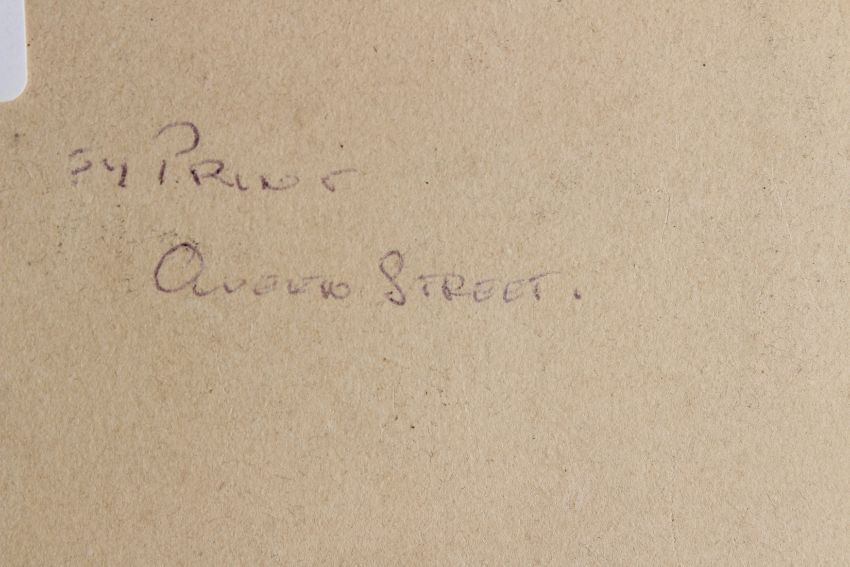 Print
Queen Street.